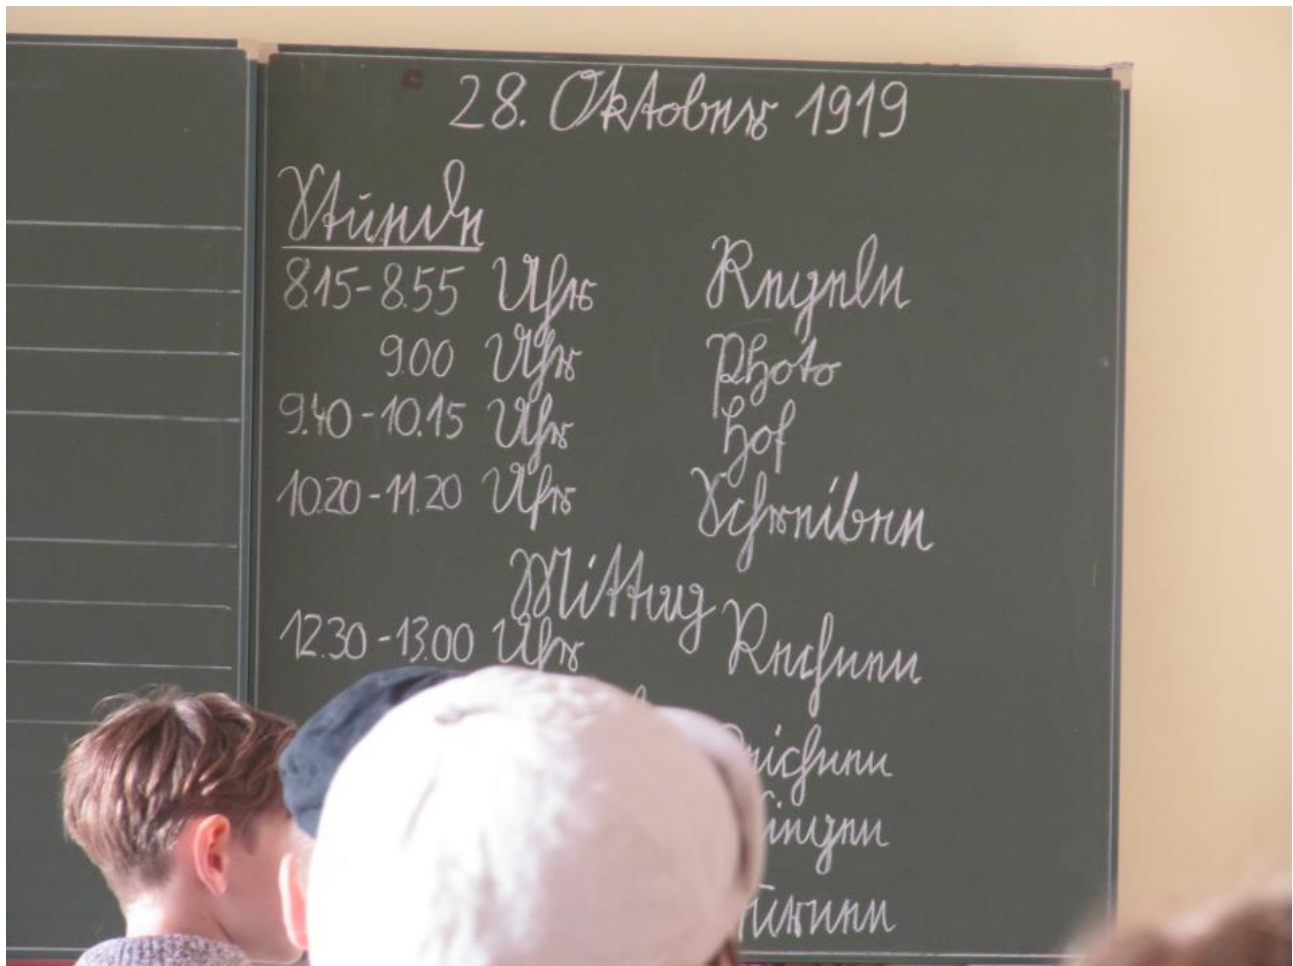 28. Oktober 1919
Stunde
8.15-8.55 Uhr Regeln
9.00 Uhr Photo
9.40-10.15 Uhr Hof
10.20-11.20 Uhr Schreiben
Mittag
12.30-13.00 Uhr Rechnen
eichnen
ingen
urnen